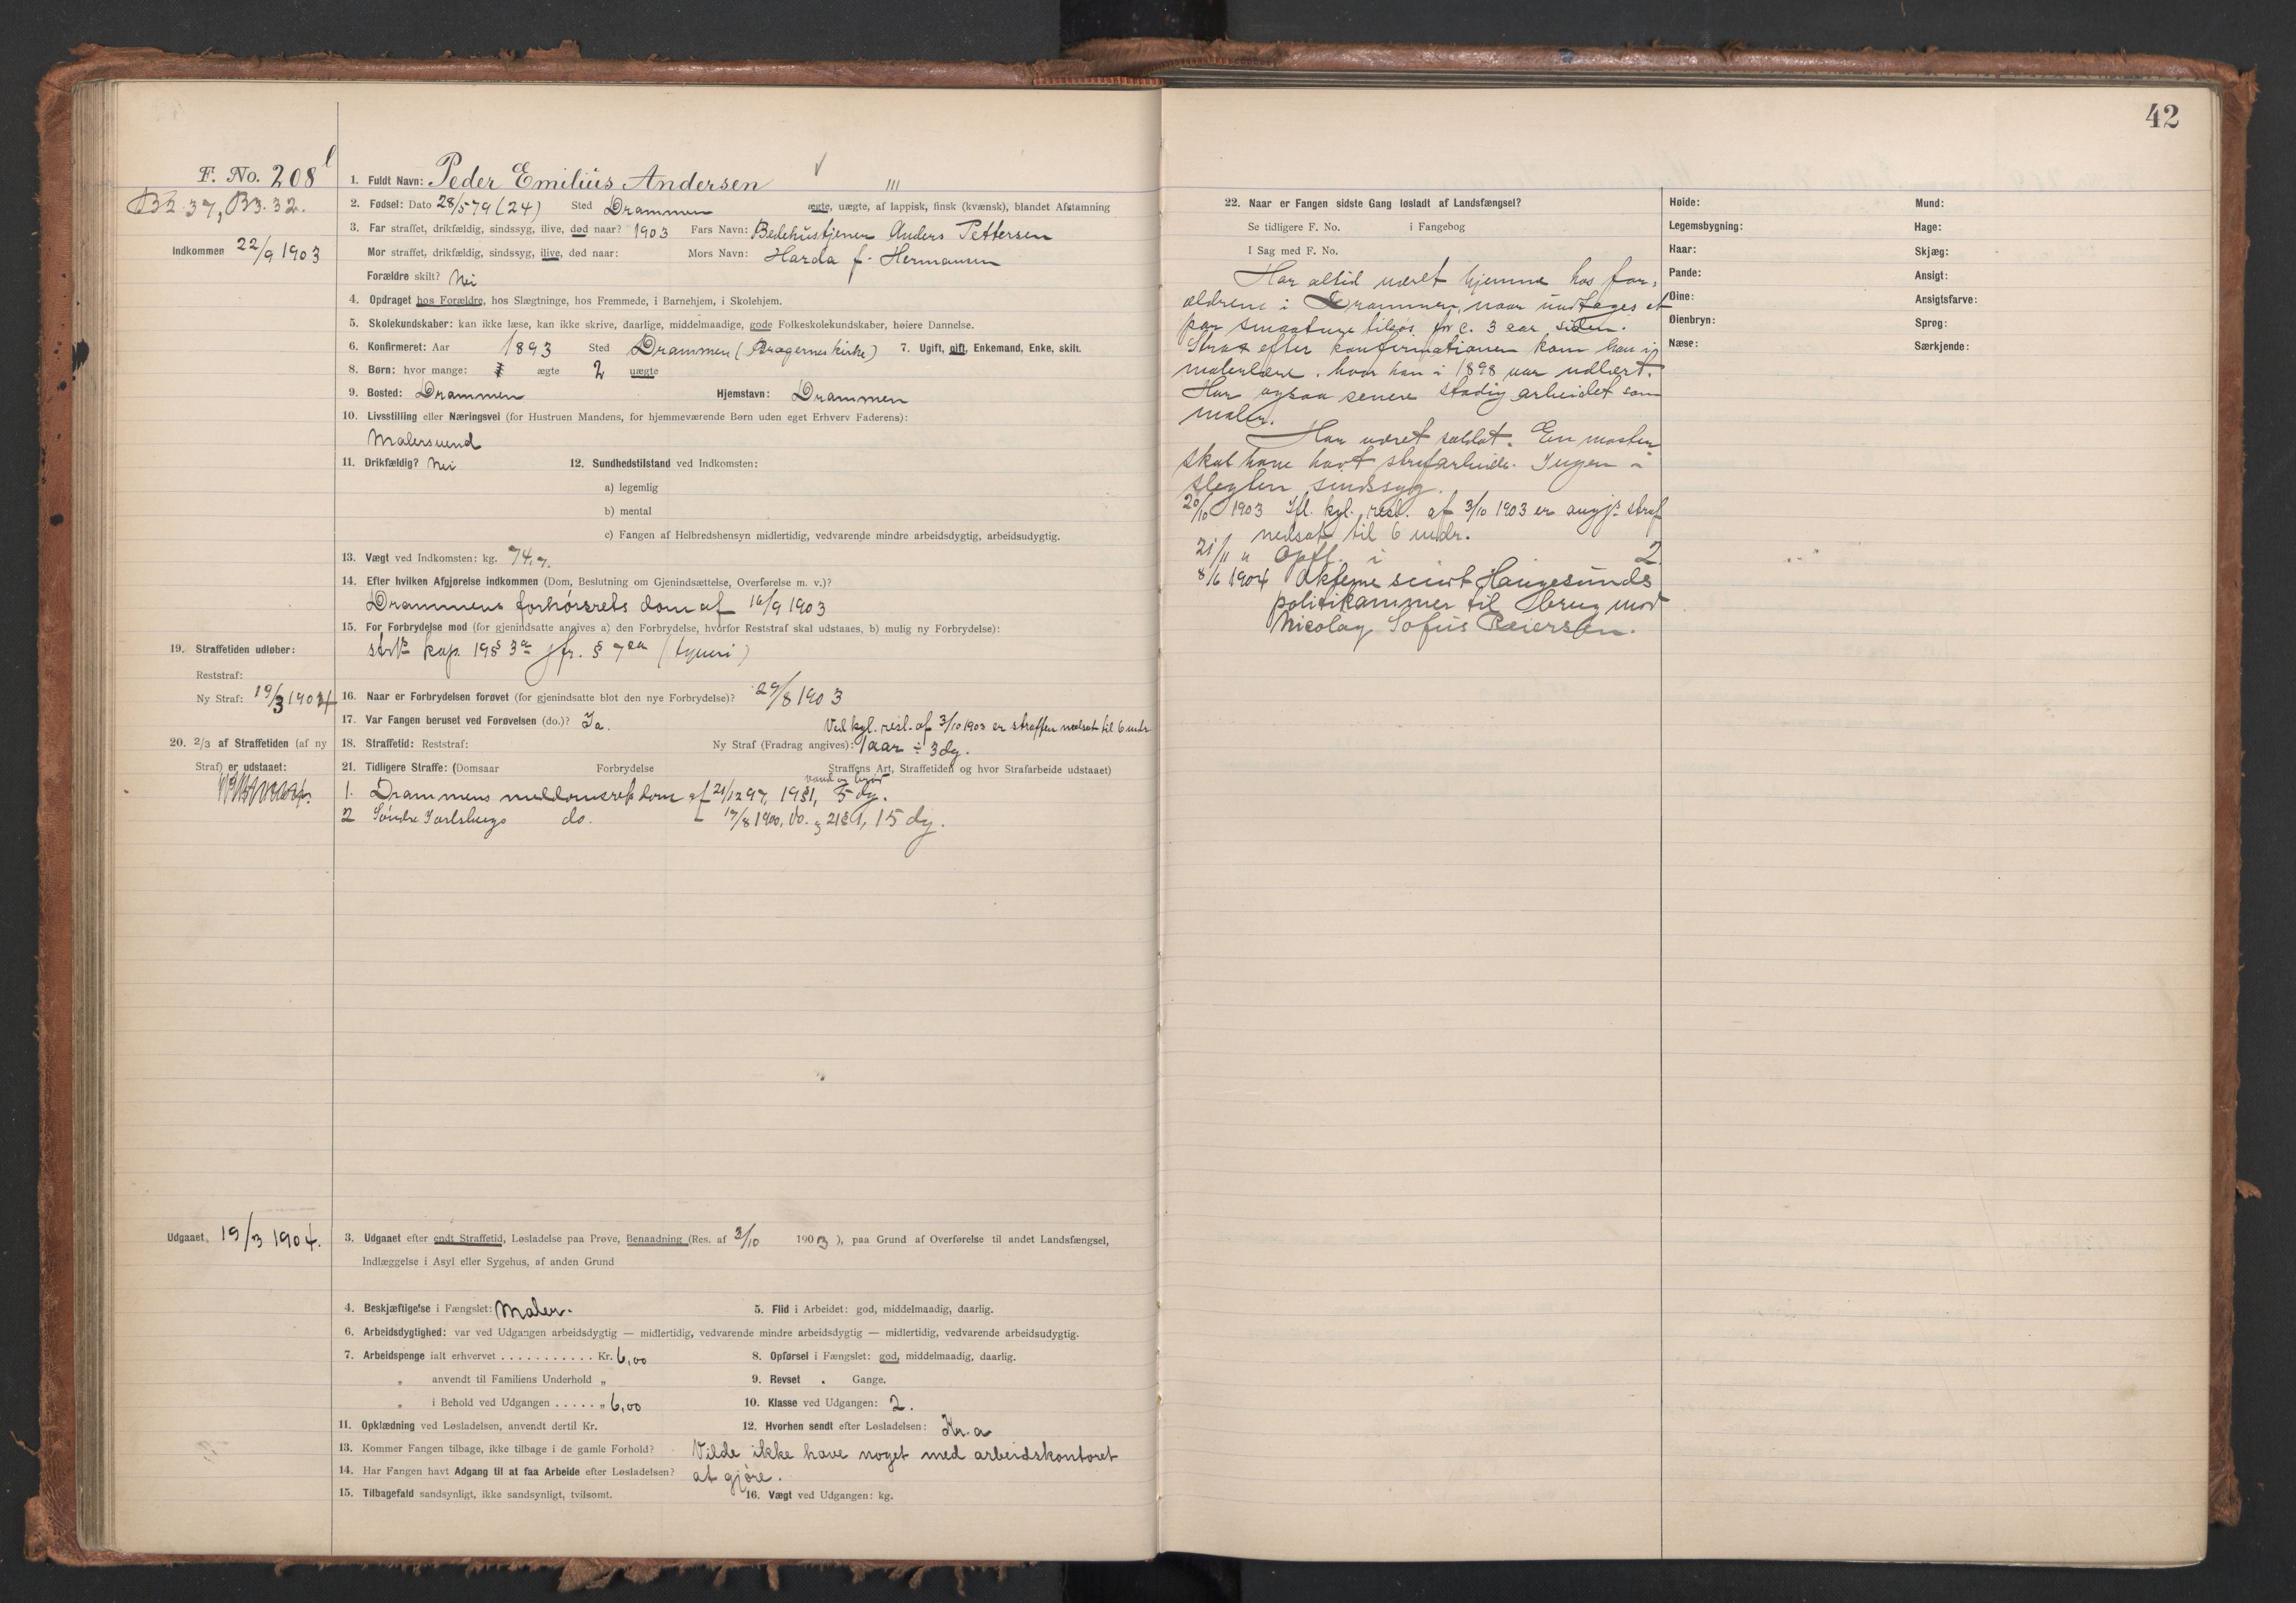 42
F. No. 208 l
B2.37, B3.32.
Indkommen 22/9 1903
1. Fuldt Navn: Peder Emilius Andersen
2. Fødsel: Dato 28/5 79 (24) Sted Drammen ægte, uægte, af lappisk, finsk (kvænsk), blandet Afstamning
3. Far straffet, drikfældig, sindssyg, ilive, død naar? 1903 Fars Navn: Bedehustjener Anders Pettersen
Mor straffet, drikfældig, sindssyg, ilive, død naar: Mors Navn: Harda f. Hermansen
Forældre skilt? Nei
4. Opdraget hos Forældre, hos Slægtninge, hos Fremmede, i Barnehjem, i Skolehjem.
5. Skolekundskaber: kan ikke læse, kan ikke skrive, daarlige, middelmaadige, gode Folkeskolekundskaber, høiere Dannelse.
6. Konfirmeret: Aar 1893 Sted Drammen (Bragernes kirke) 7. Ugift, gift, Enkemand, Enke, skilt.
8. Børn: hvor mange: ægte 2 uægte
9. Bosted: Drammen Hjemstavn: Drammen
10. Livsstilling eller Næringsvei (for Hustruen Mandens, for hjemmeværende Børn uden eget Erhverv Faderens):
Malersvend
11. Drikfældig? Nei 12. Sundhedstilstand ved Indkomsten:
a) legemlig
b) mental
c) Fangen af Helbredshensyn midlertidig, vedvarende mindre arbeidsdygtig, arbeidsudygtig.
13. Vægt ved Indkomsten: kg. 74,7.
14. Efter hvilken Afgjørelse indkommen (Dom, Beslutning om Gjenindsættelse, Overførelse m. v.)?
Drammens forhørsrets dom af 16/9 1903
15. For Forbrydelse mod (for gjenindsatte angives a) den Forbrydelse, hvorfor Reststraf skal udstaaes, b) mulig ny Forbrydelse):
kap. 19 § 3 jfr. § 7 (tyveri)
19. Straffetiden udløber:
Reststraf:
Ny Straf: 19/3 1904
16. Naar er Forbrydelsen forøvet (for gjenindsatte blot den nye Forbrydelse)? 29/8 1903
17. Var Fangen beruset ved Forøvelsen (do.)? Ja.
Ved kgl. resl. af 3/10 1903 er straffen nedsat til 6 mdr
18. Straffetid: Reststraf: Ny Straf (Fradrag angives): 1 aar ÷ 3 dg.
20. 2/3 af Straffetiden (af ny
Straf) er udstaaet:
21. Tidligere Straffe: (Domsaar Forbrydelse Straffens Art, Straffetiden og hvor Strafarbeide udstaaet)
vand og brød
1. Drammens meddomsrets dom af 21/12 97, 19 § 1, 5 dg.
2 Søndre Jarlsbergs do. 17/8 1900, do. 15 dg.
Udgaaet 19/3 1904.
3. Udgaaet efter endt Straffetid, Løsladelse paa Prøve, Benaadning (Res. af 3/10 1903), paa Grund af Overførelse til andet Landsfængsel,
Indlæggelse i Asyl eller Sygehus, af anden Grund
4. Beskjæftigelse i Fængslet: Maler. 5. Flid i Arbeidet: god, middelmaadig, daarlig.
6. Arbeidsdygtighed: var ved Udgangen arbeidsdygtig — midlertidig, vedvarende mindre arbeidsdygtig — midlertidig, vedvarende arbeidsudygtig.
7. Arbeidspenge ialt erhvervet . . . . . . . . . . . Kr. 6,00 8. Opførsel i Fængslet: god, middelmaadig, daarlig.
„ anvendt til Familiens Underhold „ 9. Revset . Gange.
„ i Behold ved Udgangen . . . . . „ 6,00 10. Klasse ved Udgangen: 2.
11. Opklædning ved Løsladelsen, anvendt dertil Kr. 12. Hvorhen sendt efter Løsladelsen: Kr.a
13. Kommer Fangen tilbage, ikke tilbage i de gamle Forhold? Vilde ikke have noget med arbeidskontoret
14. Har Fangen havt Adgang til at faa Arbeide efter Løsladelsen? at gjøre.
15. Tilbagefald sandsynligt, ikke sandsynligt, tvilsomt. 16. Vægt ved Udgangen: kg.
22. Naar er Fangen sidste Gang løsladt af Landsfængsel?
Se tidligere F. No. i Fangebog
I Sag med F. No.
Har altid været hjemme hos for-
ældrene i Drammen, naar undtages et
par smaature tilsjøs for c. 3 aar siden.
Strax efter konfirmationen kom han i
malerlære, hvor han i 1898 var udlært.
Har ogsaa senere stadig arbeidet som
maler.
Har været soldat. En moster
skal have havt strafarbeide. Ingen i
slegten sindssyg.
20/10 1903 Ifl. kgl. resl. af 3/10 1903 er straf
nedsat til 6 mdr.
21/11 " Opfl. i 2
8/6 1904 Akterne sendt Haugesunds
politikammer til brug mod
Nicolay Sofus Reiersen.
Høide:
Legemsbygning:
Haar:
Pande:
Øine:
Øienbryn:
Næse:
Mund:
Hage:
Skjæg:
Ansigt:
Ansigtsfarve:
Sprog:
Særkjende: